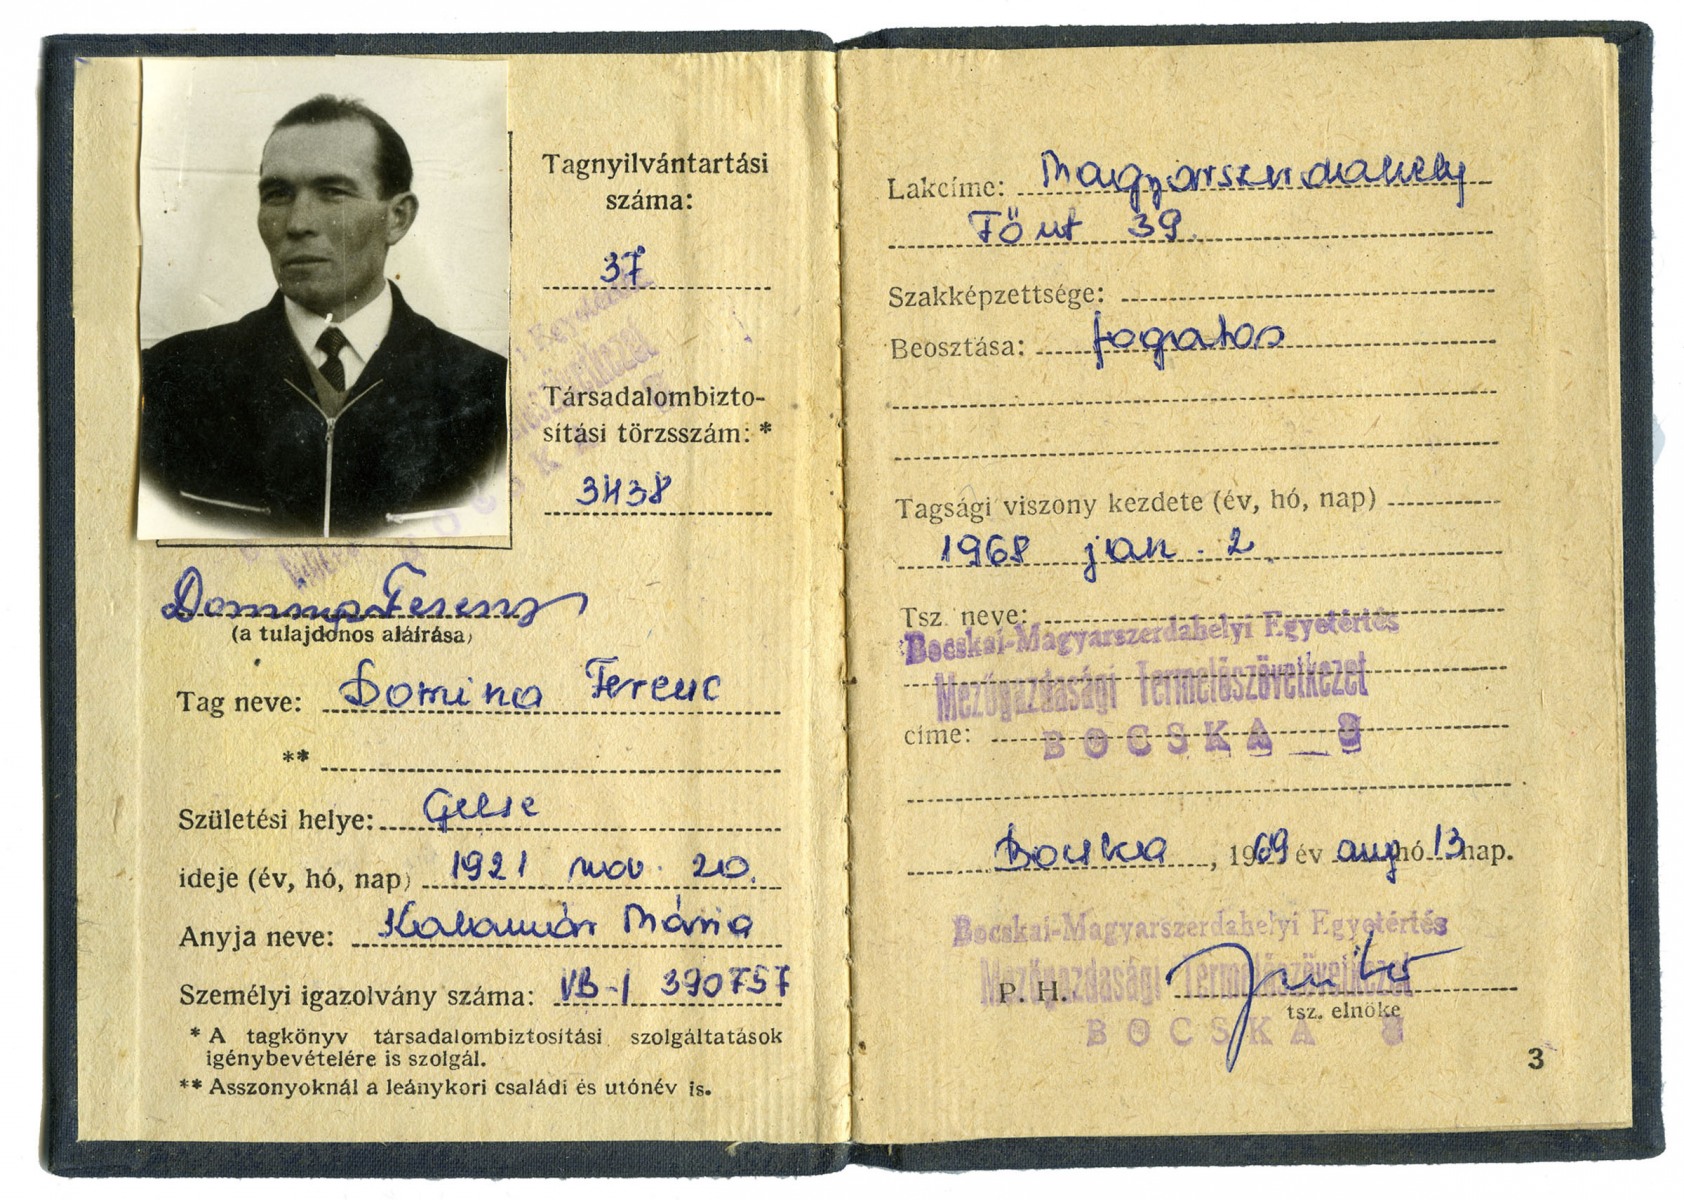 Tagnyilvántartási
száma:
37
Társadalombizto-
sítási törzsszám: *
3438
Domina Ferenc
(a tulajdonos aláírása)
Tag neve: Domina Ferenc
**
Születési helye: Gelse
ideje (év, hó, nap) 1921 nov. 20.
Anyja neve: Kalamár Mária
Személyi igazolvány száma: VB-I 390757
* A tagkönyv társadalombiztosítási szolgáltatások
igénybevételére is szolgál.
** Asszonyoknál a leánykori családi és utónév is.
Lakcíme: Magyarszerdahely
Fő ut 39.
Szakképzettsége:
Beosztása: fogatos
Tagsági viszony kezdete (év, hó, nap)
1968 jan. 2.
Tsz. neve:
Bocskai-Magyarszerdahelyi Egyetértés
Mezőgazdasági Termelőszövetkezet
címe: BOCSKA
Bocska, 1969 év aug hó 13 nap.
Bocskai-Magyarszerdahelyi Egyetértés
Mezőgazdasági Termelőszövetkezet
P. H.
tsz. elnöke
BOCSKA
3